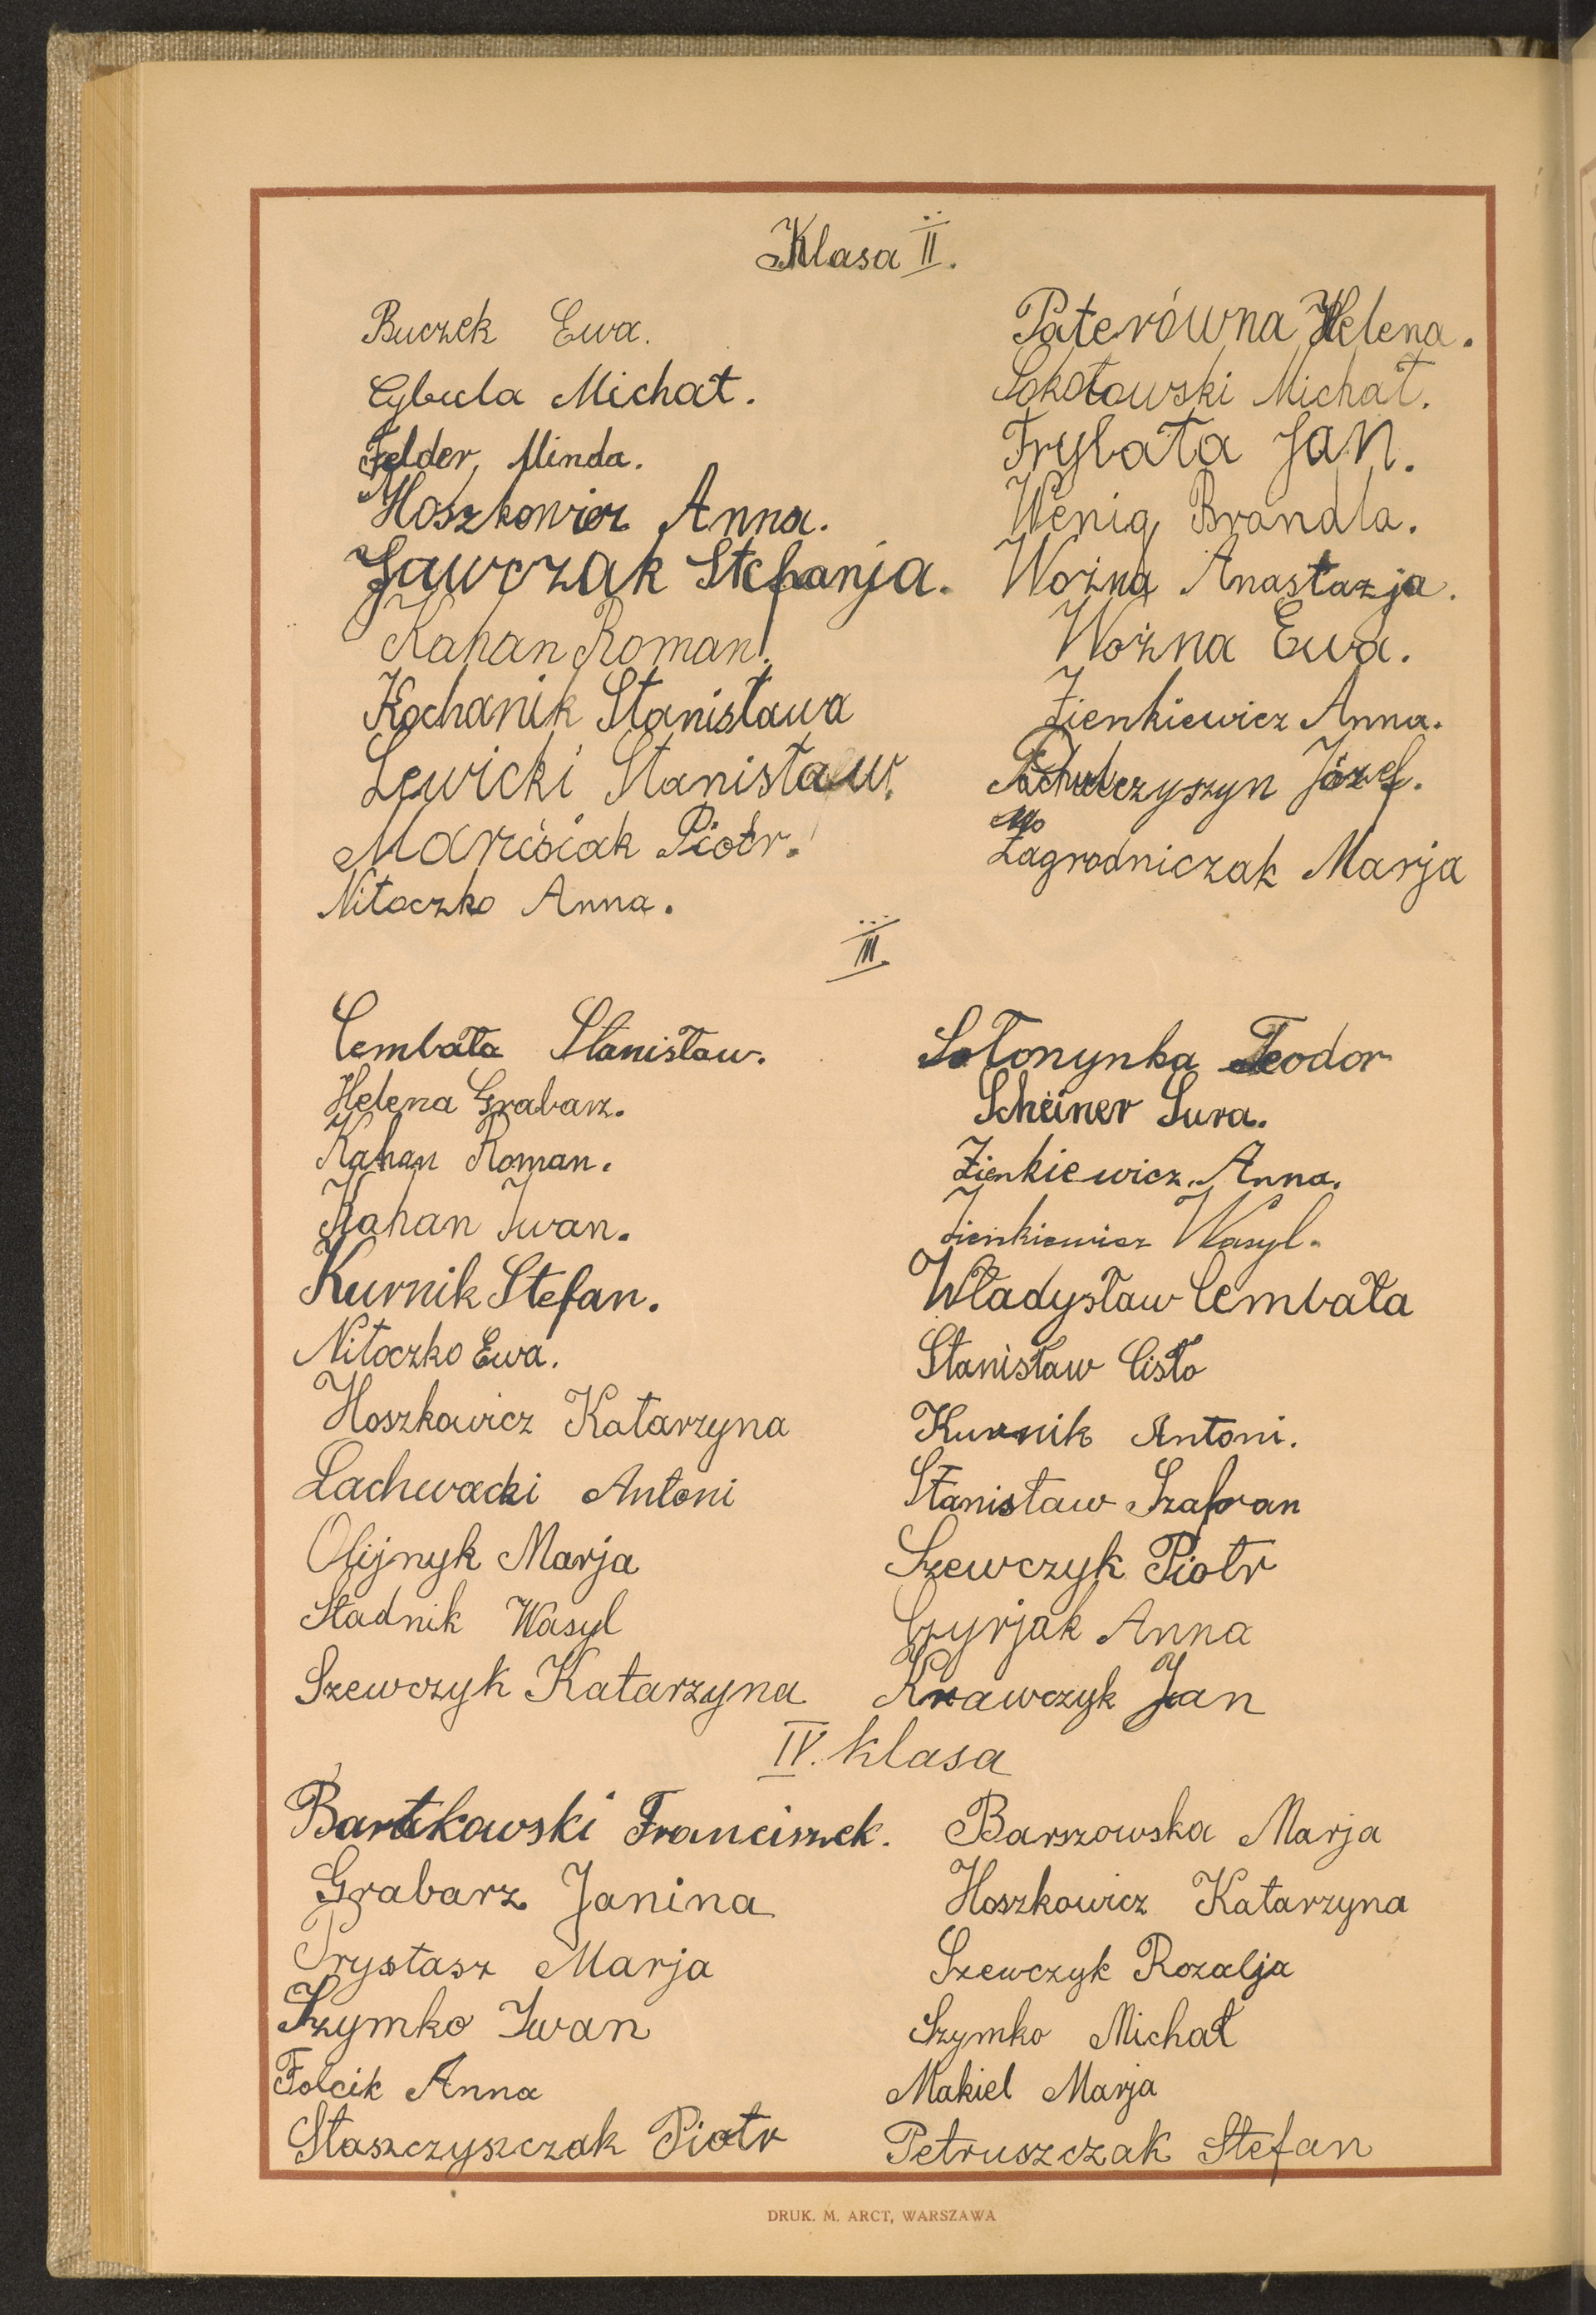 Klasa II.
Buczek Ewa.
Cybula Michał.
Felder Minda.
Hoszkowicz Anna.
Jawczak Stefanja.
Kahan Roman.
Kochanik Stanisława
Lewicki Stanisław.
Marisiak Piotr.
Nitoczko Anna.
Paterówna Helena.
Sokołowski Michał.
Trybała Jan.
Wenig Brandla.
Woźna Anastazja.
Woźna Ewa.
Zienkiewicz Anna.
Józef.
Zagrodniczak Marja
III.
Cembała Stanisław.
Helena Grabarz.
Kahan Roman.
Kahan Iwan.
Kurnik Stefan.
Nitoczko Ewa.
Hoszkowicz Katarzyna
Lachwacki Antoni
Olijnyk Marja
Stadnik Wasyl
Szewczyk Katarzyna
Sołonynka Teodor
Scheiner Sura.
Zienkiewicz Anna.
Zienkiewicz Wasyl.
Władysław Cembała
Stanisław Cisło
Kurnik Antoni.
Stanisław Szafran
Szewczyk Piotr
Czyrjak Anna
Krawczyk Jan
IV. klasa
Bartkowski Franciszek.
Grabarz Janina
Prystasz Marja
Szymko Iwan
Folcik Anna
Staszczyszczak Piotr
Barszowska Marja
Hoszkowicz Katarzyna
Szewczyk Rozalja
Szymko Michał
Makiel Marja
Petruszczak Stefan
DRUK. M. ARCT, WARSZAWA